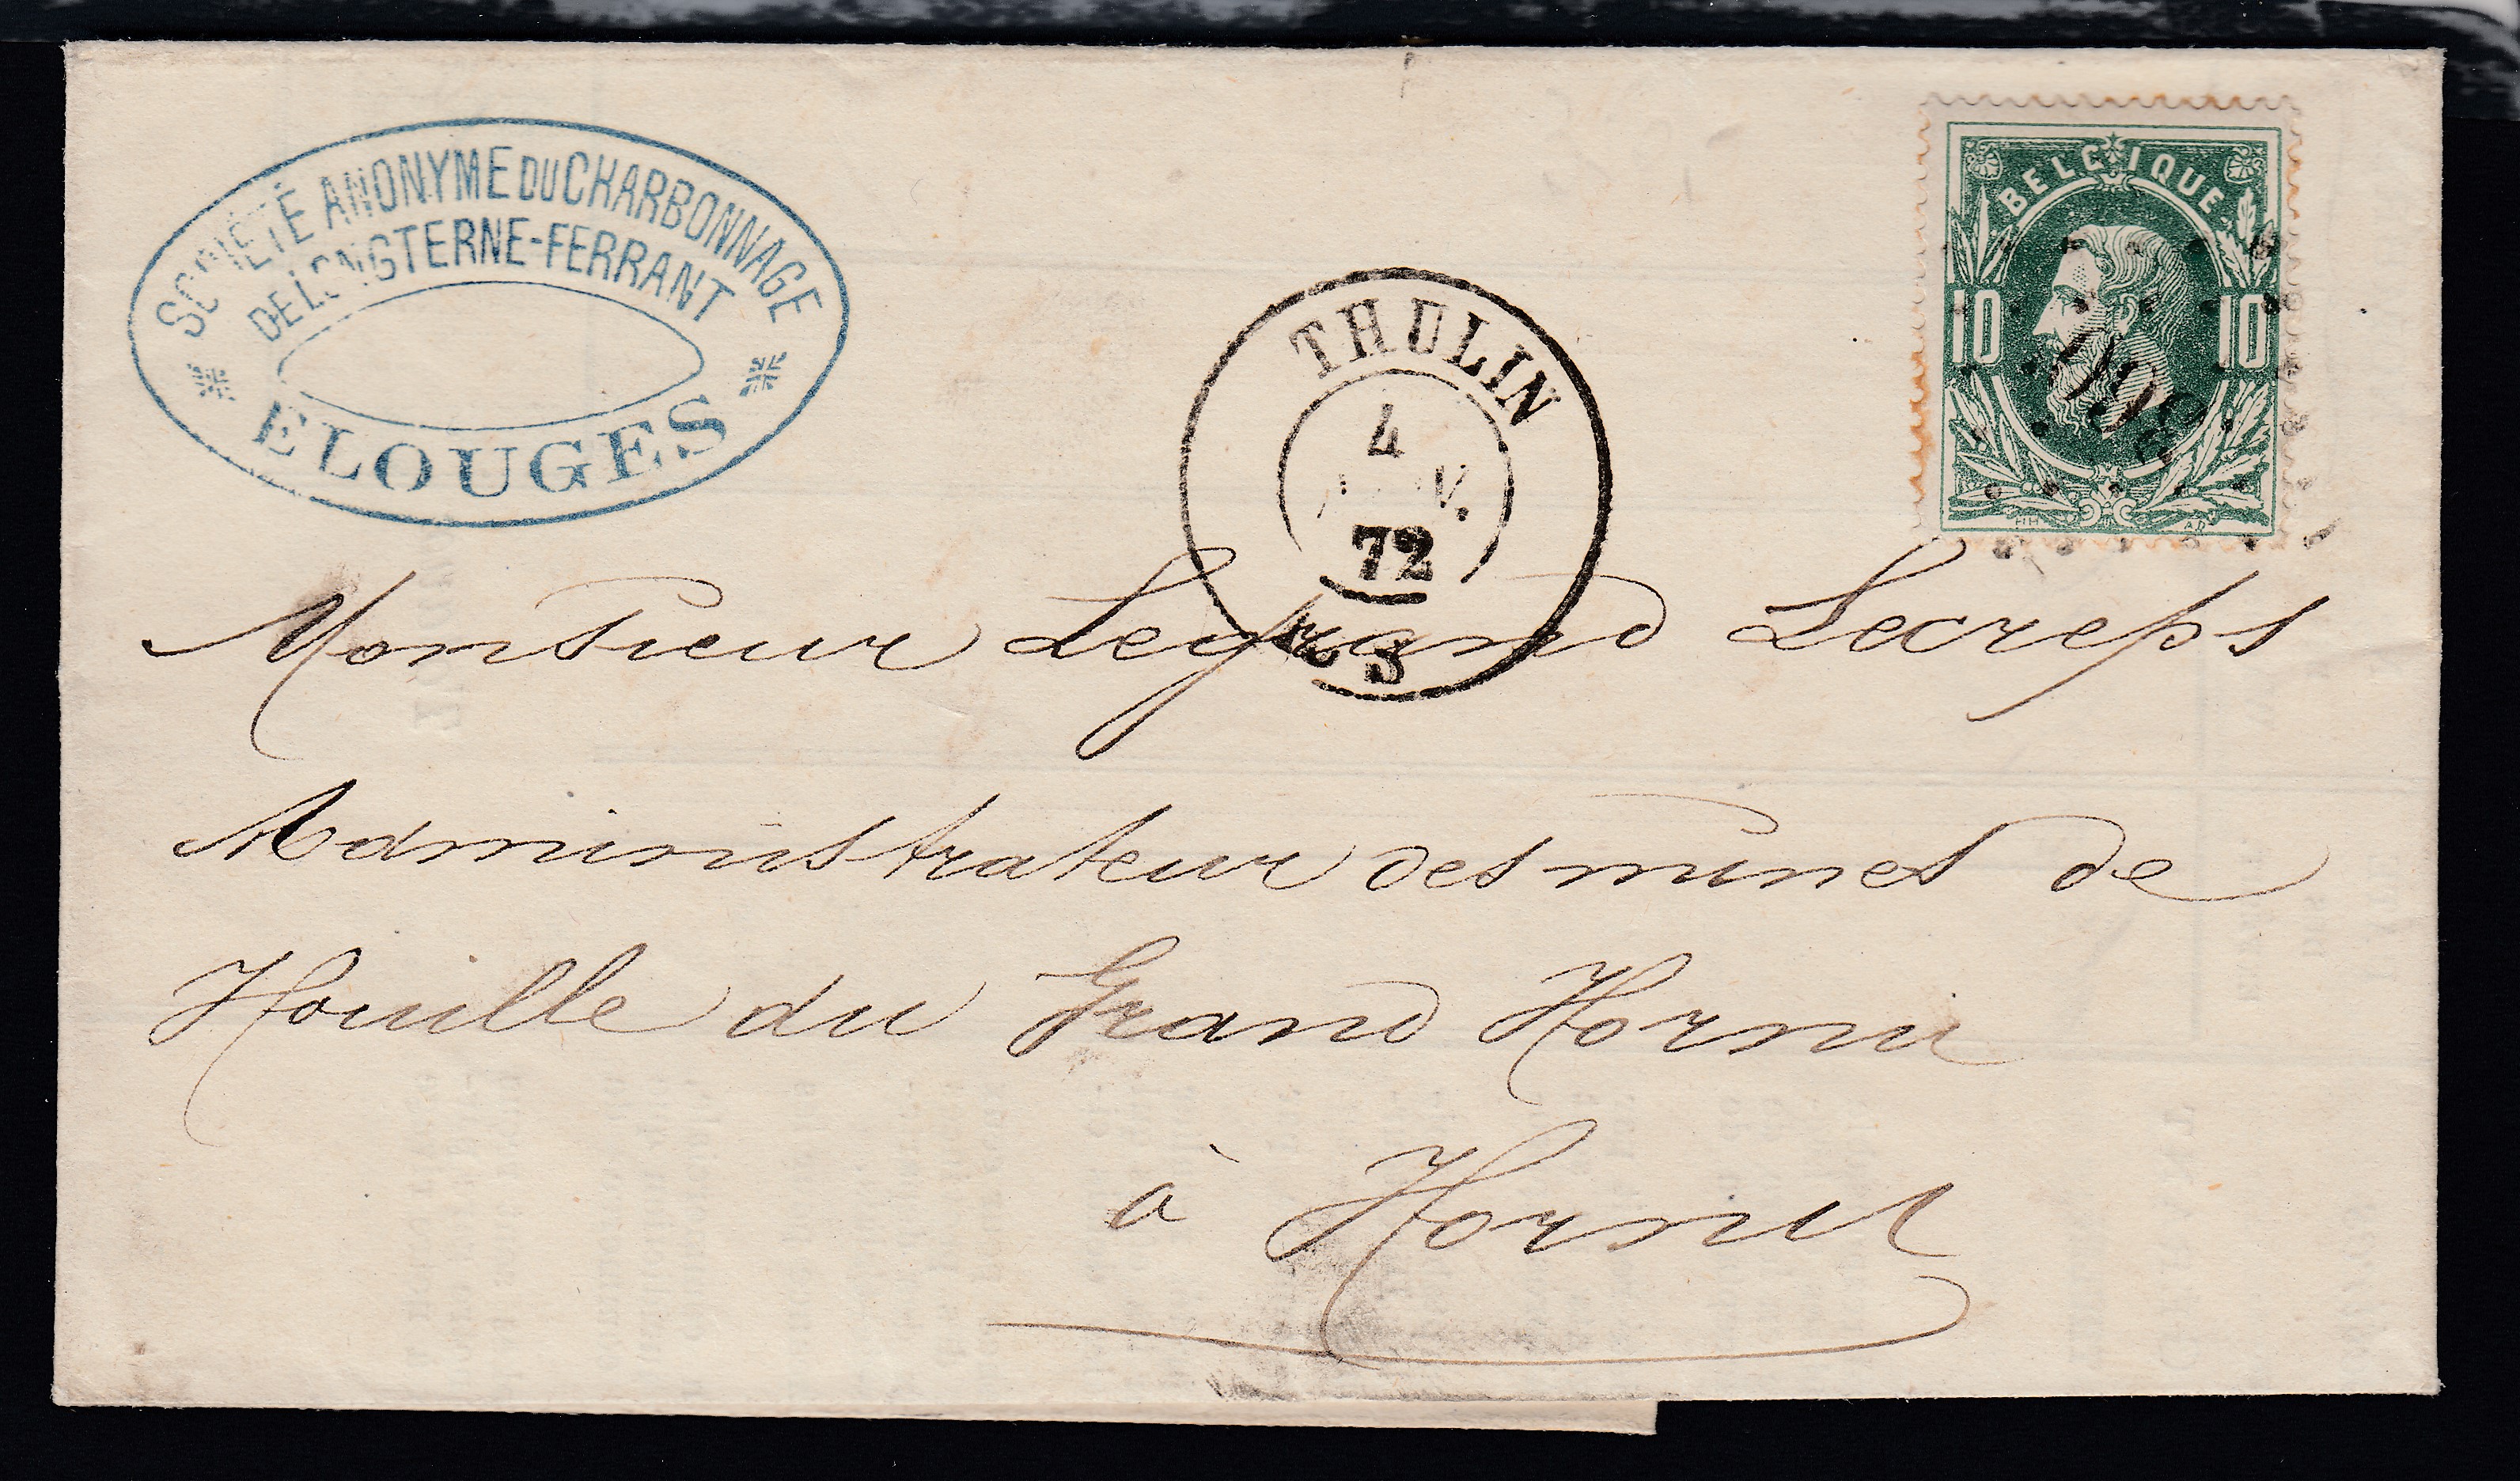 SOCIÉTÉ ANONYME DU CHARBONNAGE
DE LONGTERNE-FERRANT
ELOUGES
THULIN
4
72
3
BELGIQUE
10 10
Monsieur Legrand Lecreps
Administrateur des mines de
Houille du Grand Hornu
à Hornu